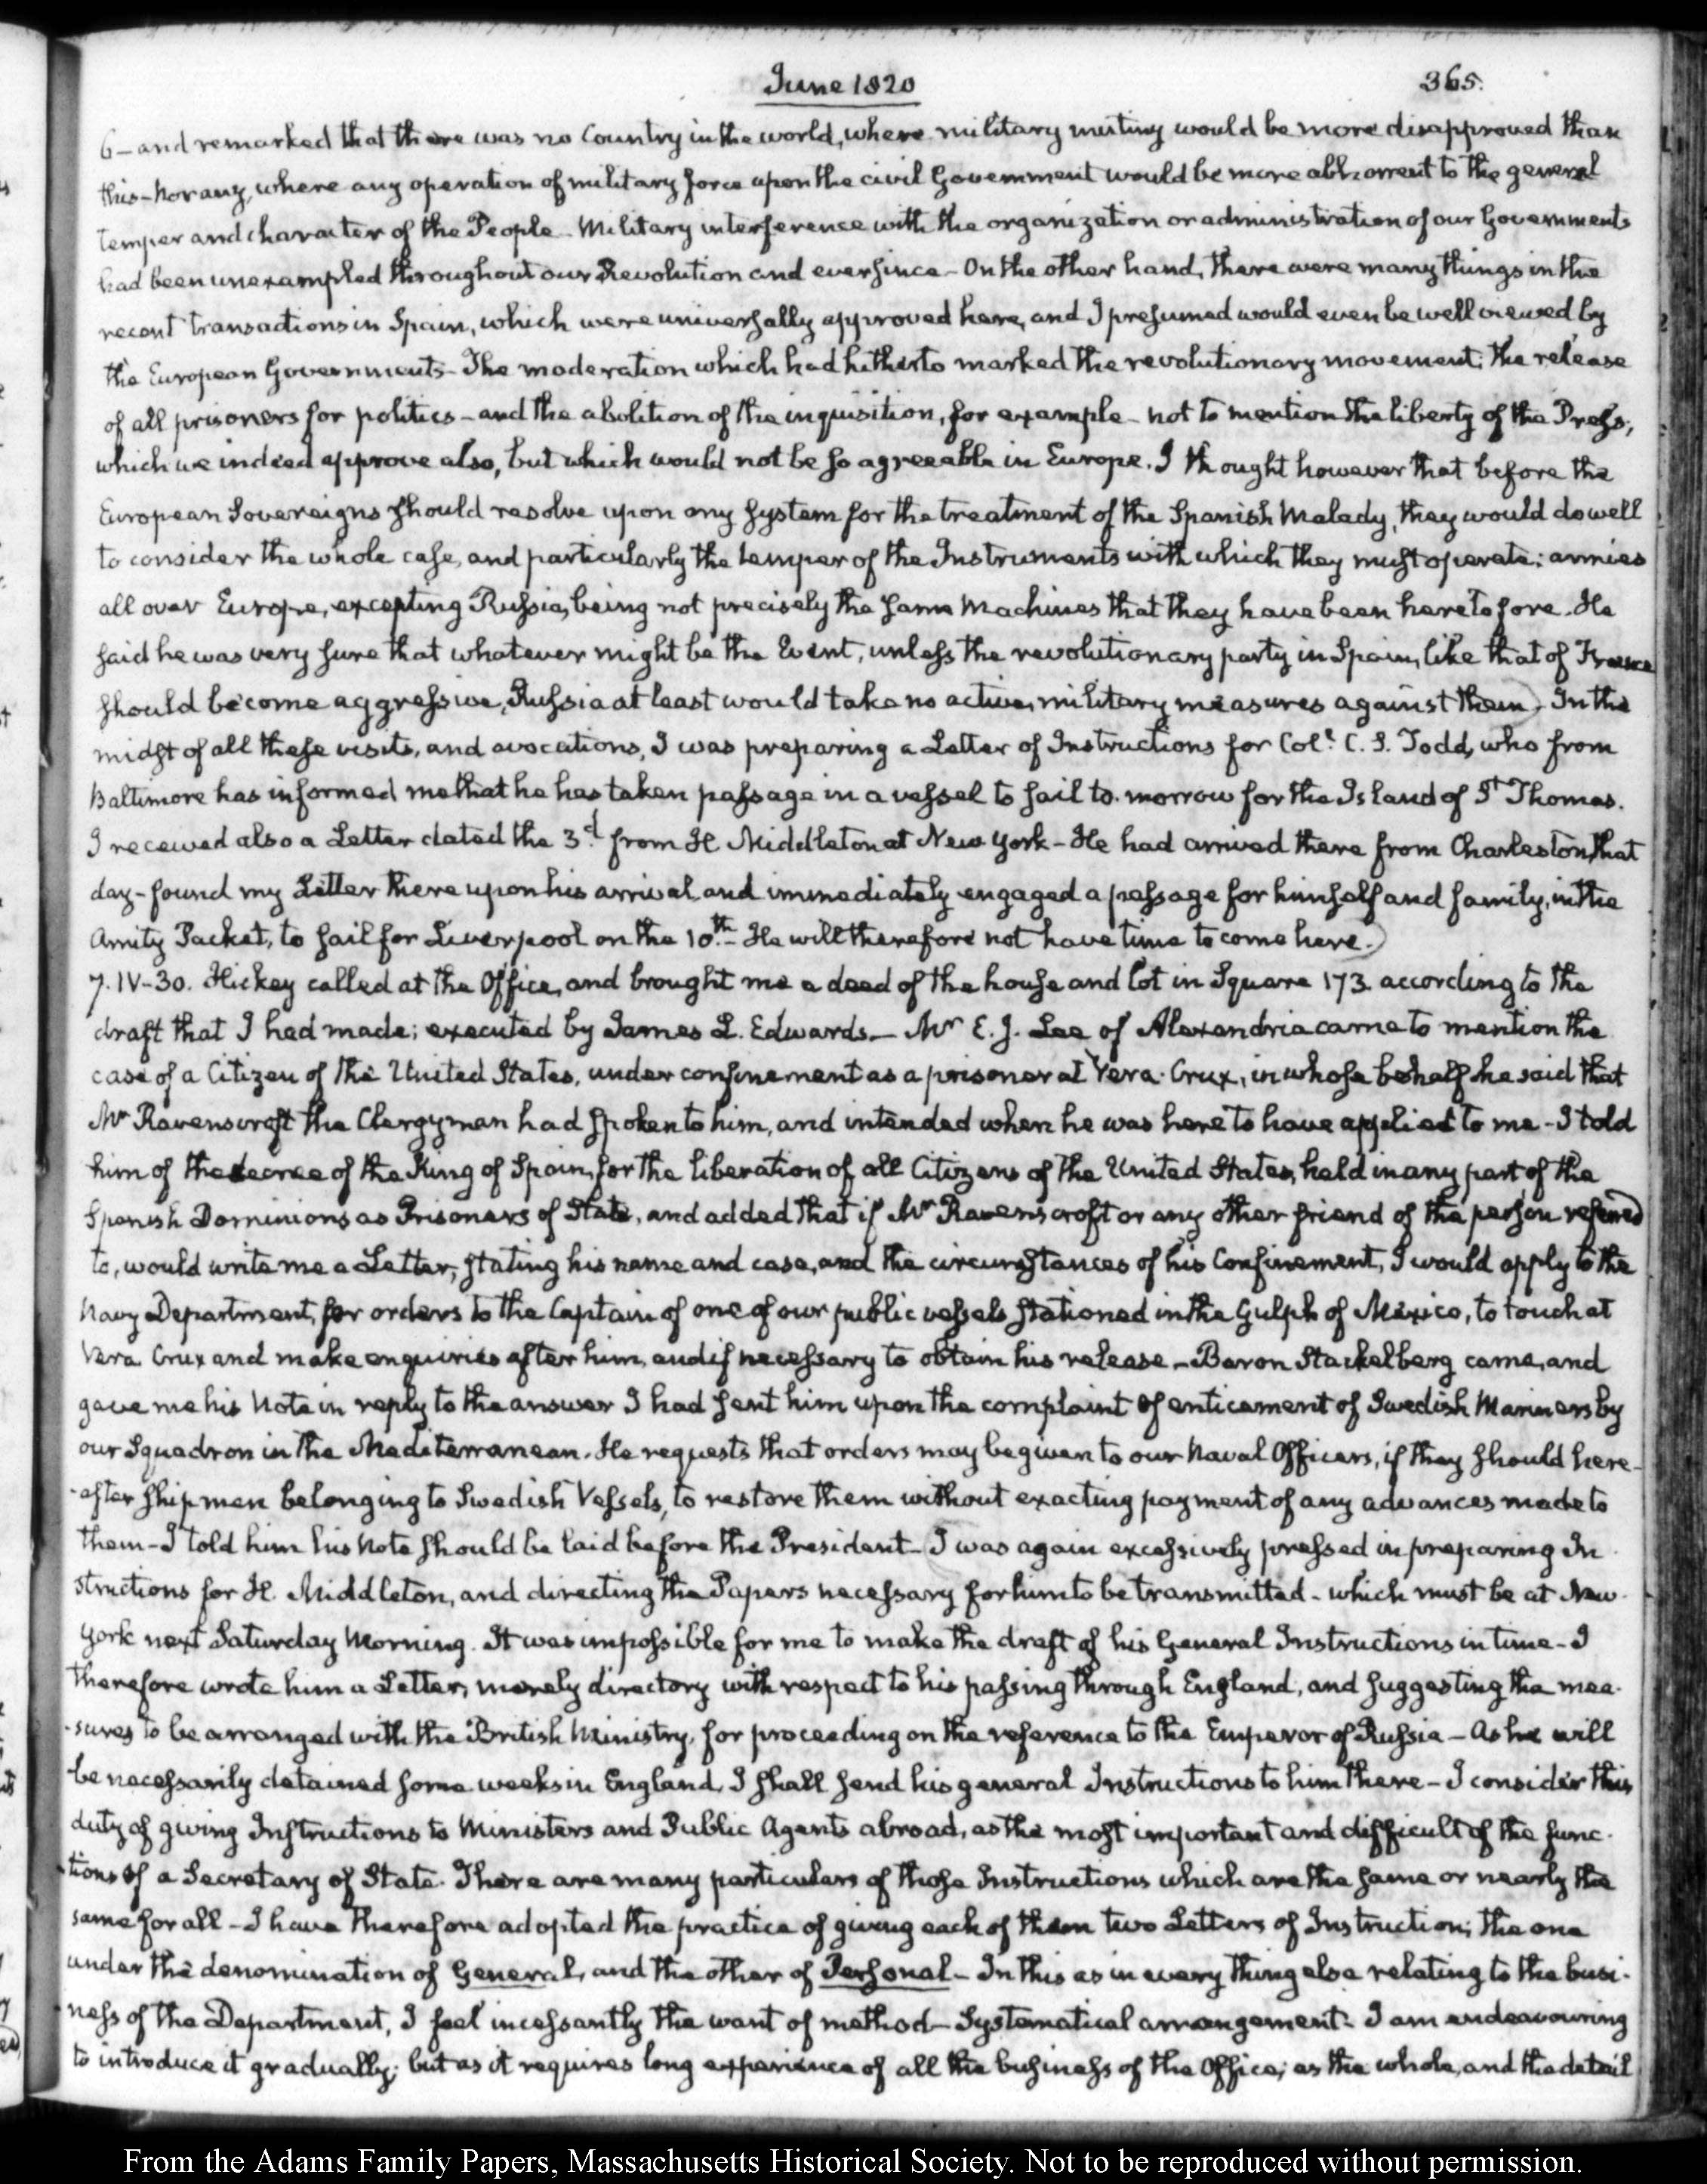 June 1820
365.
6 – and remarked that there was no Country in the world, where military mutiny would be more disapproved than
this – nor any, where any operation of military force upon the civil Government would be more abhorrent to the general
temper and character of the People – Military interference with the organization or administration of our Governments
had been unexampled throughout our Revolution and ever since – On the other hand, there were many things in the
recent transactions in Spain, which were universally approved here, and I presumed would even be well viewed by
the European Governments – The moderation which had hitherto marked the revolutionary movement; the release
of all prisoners for politics – and the abolition of the inquisition, for example – not to mention the liberty of the Press,
which we indeed approve also, but which would not be so agreeable in Europe. I thought however that before the
European Sovereigns should resolve upon any system for the treatment of the Spanish Malady, they would do well
to consider the whole case, and particularly the temper of the Instruments with which they must operate: armies
all over Europe, excepting Russia, being not precisely the same Machines that they have been heretofore – He
said he was very sure that whatever might be the Event, unless the revolutionary party in Spain, like that of France
should become aggressive, Russia at least would take no active, military measures against them) – In the
midst of all these visits, and avocations, I was preparing a Letter of Instructions for Coll. C. S. Todd, who from
Baltimore has informed me that he has taken passage in a vessel to sail to-morrow for the Island of St Thomas.
I received also a Letter dated the 3d. from H Middleton at New York – He had arrived there from Charleston, that
day – found my Letter there upon his arrival and immediately engaged a passage for himself and family, in the
Amity Packet, to sail for Liverpool on the 10th. – He will therefore not have time to come here.)
7. IV-30. Hickey called at the Office, and brought me a deed of the house and lot in Square 173. according to the
draft that I had made; executed by James L. Edwards. – Mr E. J. Lee of Alexandria came to mention the
case of a Citizen of the United States, under confinement as a prisoner at Vera-Crux, in whose behalf he said that
Mr Ravenscroft the Clergyman had spoken to him, and intended when he was here to have applied to me – I told
him of the decree of the King of Spain, for the liberation of all Citizens of the United States, held in any part of the
Spanish Dominions as Prisoners of State, and added that if Mr Ravenscroft or any other friend of the person referred
to, would write me a Letter, stating his name and case, and the circumstances of his Confinement, I would apply to the
Navy Department, for orders to the Captain of one of our public vessels stationed in the Gulph of Mexico, to touch at
Vera Crux and make enquiries after him, and if necessary to obtain his release – Baron Stackelberg came, and
gave me his Note in reply to the answer I had sent him upon the complaint of enticement of Swedish Mariners by
our Squadron in the Mediterranean. He requests that orders may be given to our Naval Officers, if they should here-
-after ship men belonging to Swedish Vessels, to restore them without exacting payment of any advances made to
them – I told him his Note should be laid before the President – (I was again excessively pressed in preparing In-
structions for H. Middleton, and directing the Papers necessary for him to be transmitted – which must be at New-
York next Saturday Morning. It was impossible for me to make the draft of his General Instructions in time – I
therefore wrote him a Letter, merely directory with respect to his passing through England, and suggesting the mea-
-sures to be arranged with the British Ministry, for proceeding on the reference to the Emperor of Russia – As he will
be necessarily detained some weeks in England, I shall send his general Instructions to him there – I consider this
duty of giving Instructions to Ministers and Public Agents abroad, as the most important and difficult of the func-
-tions of a Secretary of State. There are many particulars of those Instructions which are the same or nearly the
same for all – I have therefore adopted the practice of giving each of them two Letters of Instruction; the one
under the denomination of General, and the other of Personal – In this as in every thing else relating to the busi-
ness of the Department, I feel incessantly the want of method – Systematical arrangement. I am endeavouring
to introduce it gradually; but as it requires long experience of all the business of the Office; as the whole, and the detail
From the Adams Family Papers, Massachusetts Historical Society. Not to be reproduced without permission.